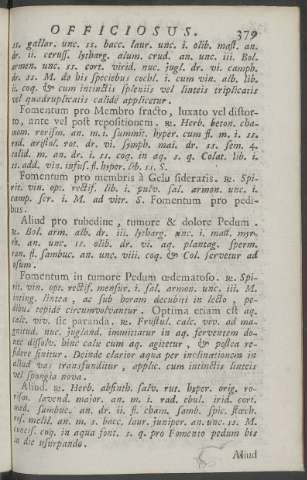 OFFICIOSUS. 379
ss. gallar. unc. ss. bacc. laur. unc. i. olib. mast. an.
dr. ii. ceruss. lytharg. alum. crud. an. unc. iii. Bol.
armen. unc. ss. cort. virid. nuc. jugl. dr. vi. camph.
dr. ss. M. do his speciebus cochl. i. cum vin. alb. lib.
ii. coq. & cum intinctis spleniis vel linteis triplicatis
vel quadruplicatis calidè applicetur.
Fomentum pro Membro fracto, luxato vel distor-
to, ante vel post repositionem. ℞. Herb. beton. cha-
mæm. rorism. an. m. i. summit. hyper. cum fl. m. i. ss.
rad. aristol. rot. dr. vi. symph. mai. dr. ss. sem. 4.
calid. m. an. dr. i. ss. coq. in aq. s. q. Colat. lib. i.
ii. add. vin. infus. fl. hyper. lib. ss. S.
Fomentum pro membris à Gelu sideratis. ℞. Spi-
rit. vin. opt. rectif. lib. i. pulv. sal. armon. unc. i.
camp. scr. i. M. ad vitr. S. Fomentum pro pedi-
bus.
Aliud pro rubedine, tumore & dolore Pedum.
℞. Bol. arm. alb. dr. iii. lytharg. unc. i. mast. myr-
rh. an. unc. ss. olib. dr. vi. aq. plantag. sperm.
ran. fl. sambuc. an. unc. viii. coq. & Col. servetur ad
usum.
Fomentum in tumore Pedum œdematoso. ℞. Spi-
rit. vin. opt. rectif. mensur. i. sal. armon. unc. iii. M.
inting. lintea, ac sub horam decubitus in lecto, pe-
dibus, tepidè circumvolvantur. Optima etiam est aq.
calc. viv. sic paranda. ℞. Frustul. calc. viv. ad ma-
gnitud. nuc. jugland. immittatur in aq. ferventem do-
nec dissolv. hinc calx cum aq. agitetur, & postea re-
sidere sinitur. Deinde clarior aqua per inclinationem in
aliud vas transfunditur, applic. cum intinctis linteis
vel spongia nova.
Aliud. ℞. Herb. absinth. salv. rut. hyper. orig. ro-
rism. lavend. major. an. m. i. rad. ebul. irid. cort.
med. sambuc. an. dr. ii. fl. cham. samb. spic. stœch.
melil. an. m. s. bacc. laur. juniper. an. unc. ss. M.
concis. coq. in aqua font. s. q. pro Fomento pedum bis
in die usurpando.
Aliud